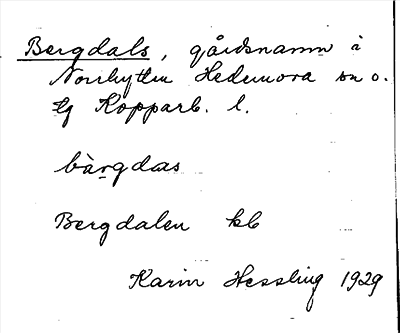 Bergdals, gårdsnamn i
Norrhyttan Hedemora sn o.
tg Kopparb. l.
bàrgdas
Bergdalen kb
Karin Hessling 1929